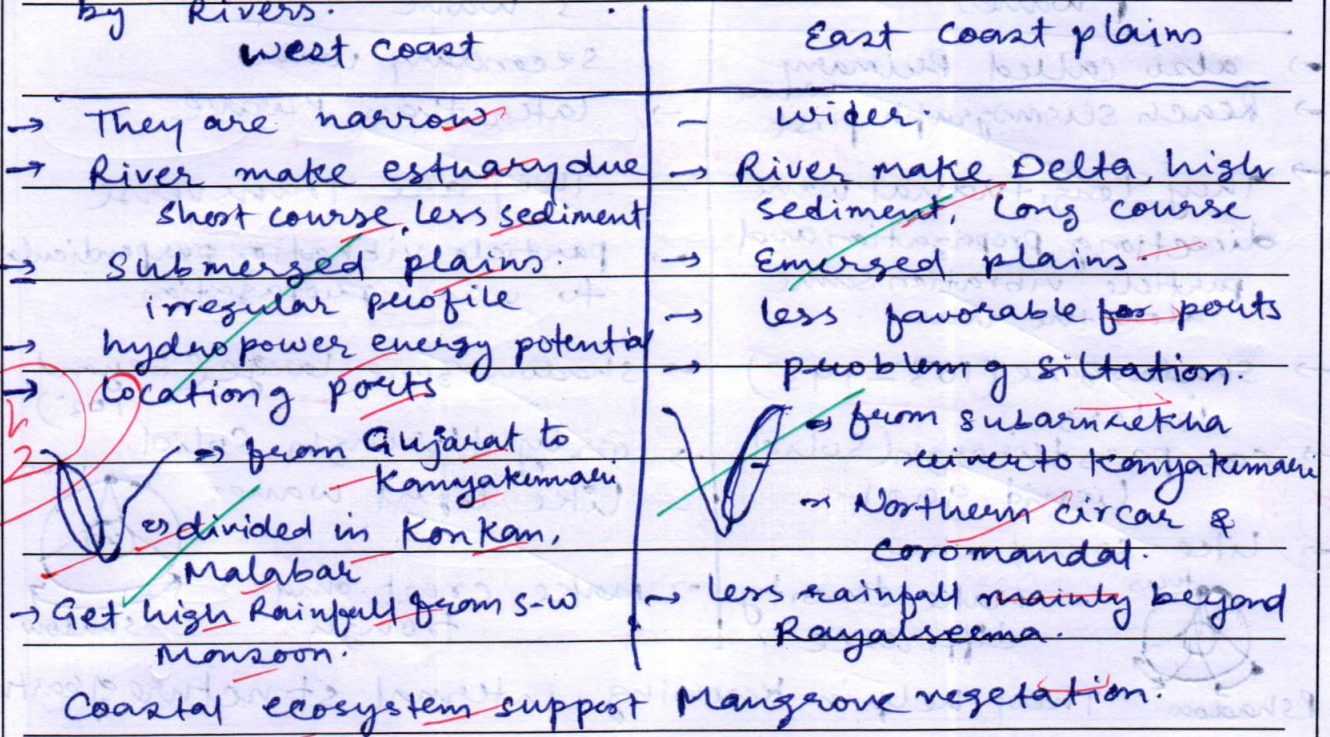 by Rivers.
west coast
East coast plains
→ They are narrow
→ River make estuary due
short course, less sediment
→ Submerged plains.
irregular profile
→ hydropower energy potential
→ location of ports
→ from Gujarat to
Kanyakumari
→ divided in Konkan,
Malabar
→ Get high Rainfall from S-W
Monsoon.
- wider,
→ River make Delta, high
sediment, long course
→ Emerged plains.
→ less favorable for ports
→ problem of siltation.
→ from subarnrekha
river to Kanyakumari
→ Northern circar &
coromandal.
→ less rainfall mainly beyond
Rayalseema.
Coastal ecosystem support Mangrove vegetation.